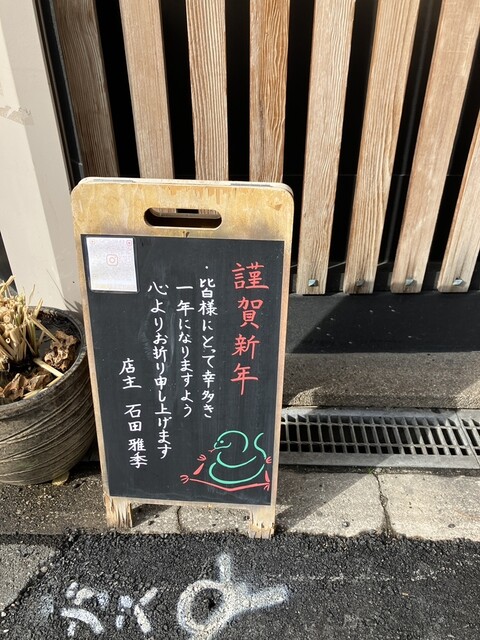 謹賀新年
・皆様にとって幸多き
一年になりますよう
心よりお祈り申し上げます
店主 石田 雅季